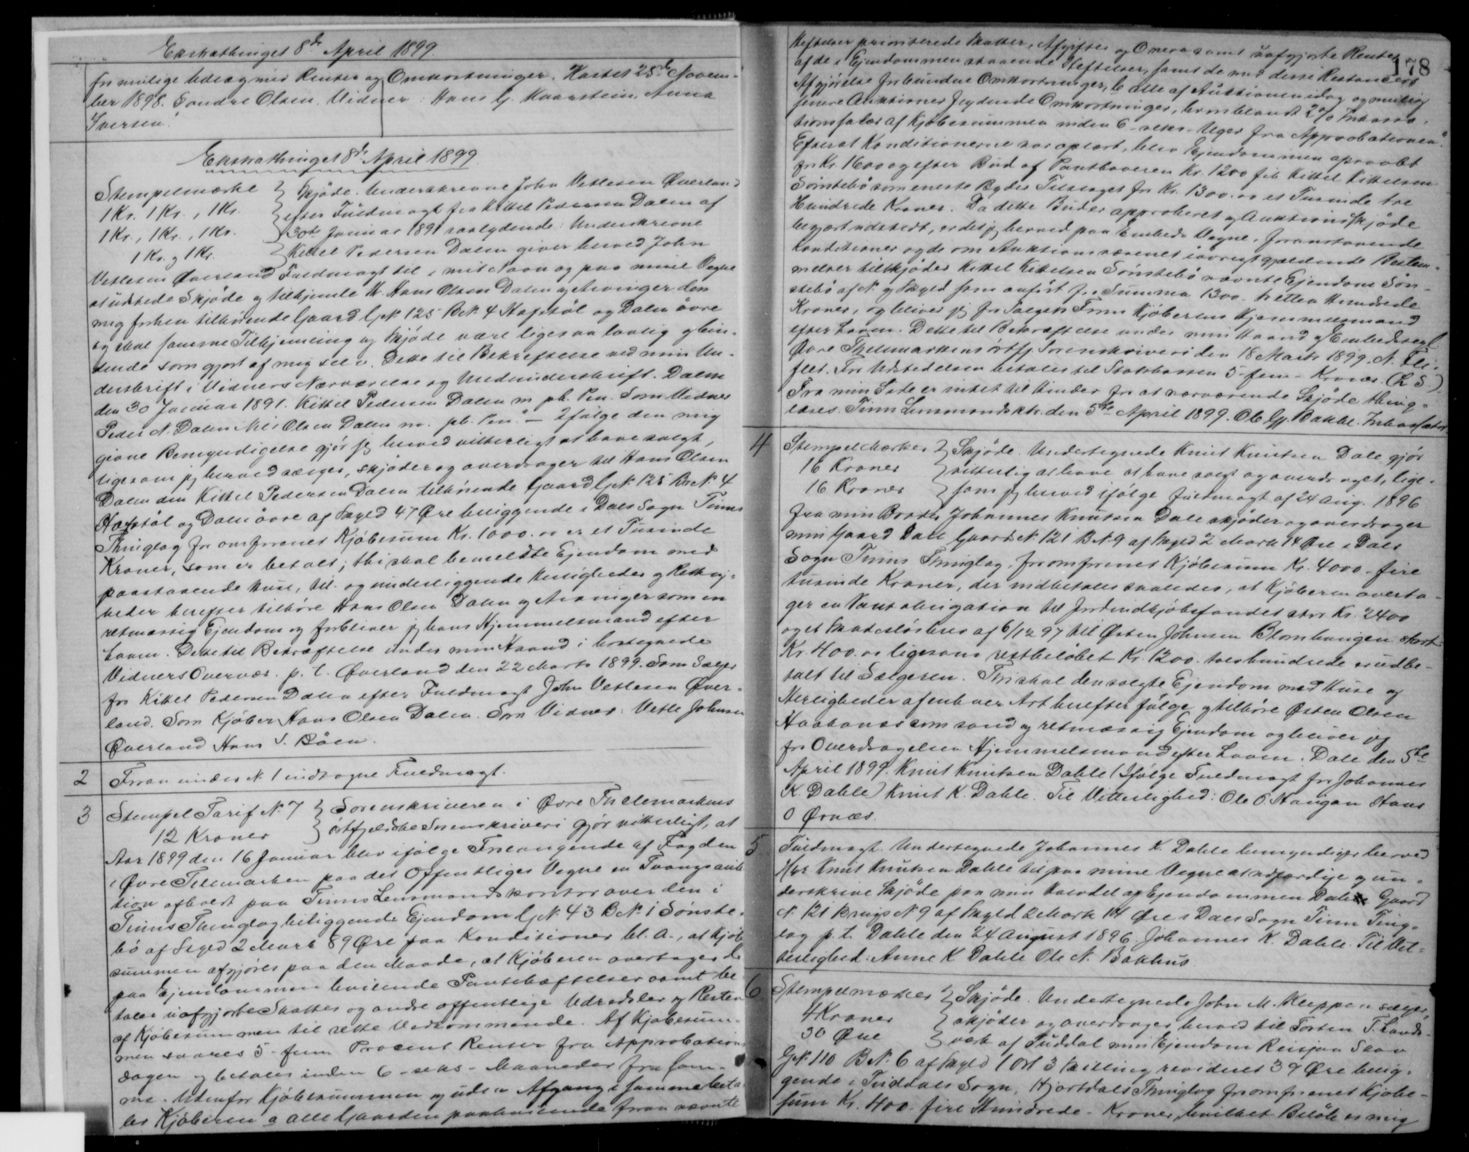 Extrathinget 8de April 1899
for mulige Udlæg med Renter og Omkostninger. Hartet 25de Novem-
ber 1898. Sondre Olsen. Vidner: Hans G. Haarstein, Anna
Iversen.
Extrathinget 8de April 1899
Stempelmærke } Skjøde. Underskrevne John Vetlesen Øverland
1 Kr. 1 Kr., 1 Kr. } efter Fuldmagt fra Kittel Pedersen Dalen af
1 Kr., 1 Kr., 1 Kr. } 30te Januar 1891 saalydende: Underskrevne
1 Kr. og 1 Kr. } Kittel Pedersen Dalen giver herved John
Vetlesen Øverland Fuldmagt til i mit Navn og paa mine Vegne
at udstede Skjøde og tilhjemle H. Hans Olsen Dalen og Arvinger den
mig forhen tilhørende Gaard G.N. 125 B.N. 4 Hafstøl og Dalen øvre
og skal samme Tilhjemling og Skjøde være ligesaa lovlig og bin-
dende som gjort af mig selv. Dette til Bekræftelse ved min Un-
derskrift i Vidners Nærværelse og Medunderskrift. Dalen
den 30 Januar 1891. Kittel Pedersen Dalen m. p. Pen. Som Vidner
Peder N. Dalen Nils Olsen Dalen m. p. Pen." – Ifølge den mig
givne Bemyndigelse gjør jeg herved vitterligt at have solgt,
ligesom jeg herved sælger, skjøder og overdrager til Hans Olsen
Dalen den Kittel Pedersen Dalen tilhørende Gaard G.N. 125 B.N. 4
Hafstøl og Dalen øvre af Skyld 47 Øre beliggende i Dals Sogn Tinns
Thinglag for omforenet Kjøbesum Kr. 1000.00 er et Tusinde
Kroner, som er betalt; thi skal bemeldte Ejendom med
paastaaende Huse, til- og underliggende Herligheder og Rettig-
heder herefter tilhøre Hans Olsen Dalen og Arvinger som en
retmæssig Ejendom og forbliver jeg hans Hjemmelsmand efter
Loven. Dette til Bekræftelse under min Haand i hostegnede
Vidners Overvær. p. t. Øverland den 22 Marts 1899. Som Sælger
for Kittel Pedersen Dalen efter Fuldmagt John Vetlesen Øver-
land. Som Kjøber Hans Olsen Dalen. Som Vidner: Vetle Johnsen
Øverland Hans S. Bøen.
2 Foran under N. 1 indtagne Fuldmagt.
3 Stempel Tarif N. 7 } Sorenskriveren i Øvre Thelemarkens
12 Kroner } østfjeldske Sorenskriveri gjør vitterligt, at
Aar 1899 den 16 Januar blev ifølge Forlangende af Fogden
i Øvre Telemarken paa det Offentliges Vegne en Tvangsauk-
tion afholdt paa Tinns Lensmandskontor over den i
Tinns Thinglag beliggende Ejendom G.N. 43 B.N. 1 Sønste-
bø af Skyld 2 Mark 89 Øre paa Konditioner bl. a. at Kjøbe
summen afgjøres paa den Maade, at Kjøberen overtager de
paa Ejendommen hvilende Panthæftelser samt be
taler uafgjorte Skatter og andre offentlige Udredsler og Resten
af Kjøbesummen til rette Vedkommende. Af Kjøbesum-
men svares 5 - fem - Procent Renter fra Approbations
dagen og betales inden 6 - seks - Maaneder fra sam-
me. Udenfor Kjøbesummen og uden Afgang i samme beta
ler Kjøberen a alle Gaarden paahvilende foran nævnte
178
Heftelser prioriterede Skatter, Afgifter og Onera samt uafgjorte Renter
af de i Ejendommen staaende Heftelser, samt de med disse Restancers
Afgjørelse forbundne Omkostninger, b alle af Auktionen idag og mulig
senere Auktioner flydende Omkostninger, hvoriblandt 2 % Inkasso.
tionsfaldes af Kjøbesummen inden 6 - seks - Uger fra Approbationen.
Efterat Konditionerne var oplæst, blev Ejendommen opraabt
for Kr. 1600 og efter Bud af Panthaveren Kr. 1200 fik Kittel Kittelsen
Sønstebø som eneste Byder Tilslaget for Kr. 1300.00 et Tusinde tre
Hundrede Kroner. Da dette Bud er approberet og Auktionsskjøde
begjært udstedt, er det jeg herved paa Embeds Vegne, foranstaaende
Konditioner og de om Auktionsvæsenet iøvrigt gjældende Bestem-
melser tilskjøder Kittel Kittelsen Sønstebø nævnte Ejendom Søn-
stebø af N. og Skyld som anført for Summa 1300 - tretten Hundrede
Kroner, og bliver jeg for Salget Frem Kjøberens Hjemmelsmand
efter Loven. Dette til Bekræftelse under min Haand og Embedssegl
Øvre Thelemarkens østfj. Sorenskriveri den 18 Marts 1899. N. Eli-
flet. For Udstedelsen betales til Statskassen 5 - fem - Kroner. (L. S.)
Fra min Side er intet til Hinder for at nærværende Skjøde thing-
læses. Tinns Lensmandsktr. den 5te April 1899. Ole Gj. Bakke. Inkassator
4 Stempelmærker } Skjøde. Undertegnede Knut Knutsen Dale gjør
16 Kroner } vitterlig at have at have solgt og overdraget, lige-
16 Kroner } som jeg herved ifølge Fuldmagt af 24 Aug. 1896
fra min Broder Johannes Knutsen Dale skjøder og overdrager
min Gaard Dale Gaards N. 121 B.N. 9 af Skyld 2 Mark 14 Øre i Dals
Sogn Tinns Thinglag, for omforenet Kjøbesum Kr. 4000 - fire
tusinde Kroner, der indbetales saaledes, at Kjøberen overta-
ger en Pantobligation til Jordindkjøbsfondet stor Kr. 2400
og et Skadesløsbrev af 6/12 97 til Østen Johnsen Blomhaugen stort
Kr. 400.00 ligesom restbeløbet Kr. 1200. tolvhundrede er udbe-
talt til Sælgeren. Thi skal den solgte Ejendom med Huse og
Herligheder af enhver Art herefter følge og tilhøre Østen Olsen
Haakaas som sand og retmæssig Ejendom og bliver jeg
for Overdragelsen Hjemmelsmand efter Loven. Dale den 5te
April 1899. Knut Knutsen Dahle (Ifølge Fuldmagt for Johannes
K. Dahle) Knut K. Dahle. Til Vitterlighed: Ole O. Haugan Hans
O Ørnæs.
5 Fuldmagt. Undertegnede Johannes K. Dahle bemyndiger herved
Hr. Knut Knutsen Dahle til paa mine Vegne at udfærdige og un-
derskrive Skjøde paa min halvdel af Ejendommen Dale Gaard
N. 121 Brugs N. 9 af Skyld 2 Mark 14 Øre i Dals Sogn Tinn Ting-
lag p. t. Dahle den 24 August 1896. Johannes K. Dahle. Til Vit-
terlighed: Anne K. Dahle Ole N. Bakhus
6 Stempelmærker } Skjøde. Undertegnede John M. Kleppen sælger,
4 Kroner } skjøder og overdrager herved til Torsten T. Lands-
30 Øre } værk af Tuddal min Ejendom Reisjaa Skov
G.N. 110 B.N. 6 af Skyld 1 Ort 3 Skilling revideret 37 Øre belig-
gende i Tuddals Sogn, Hjartdals Thinglag for omforenet Kjøbe-
sum Kr. 400. fire Hundrede - Kroner, hvilket Beløb er mig